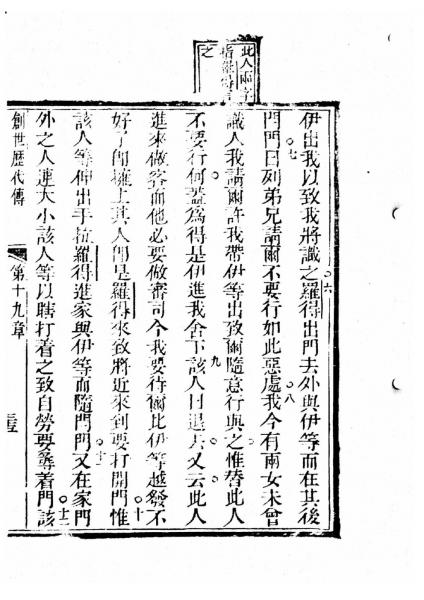 此人兩字
指羅得言
之
伊出我以致我將識之羅得出門去外與伊等而在其後
門門曰列弟兄請爾不要行如此惡處我今有兩女未曾
識人我請爾許我帶伊等出致爾隨意行與之惟替此人
不要行何蓋為得是伊進我舍下該人曰退去又云此人
進來做客而他必要做審司今我要待爾比伊等越發不
好了卽擁上其人卽是羅得來致將近來到要打開門惟
該人等伸出手拉羅得進家與伊等而隨門門又在家門
外之人連大小該人等以瞎打着之致自勞要尋着門該
創世歷代傳 第十九章
六
七
八
九
十
十一
十二